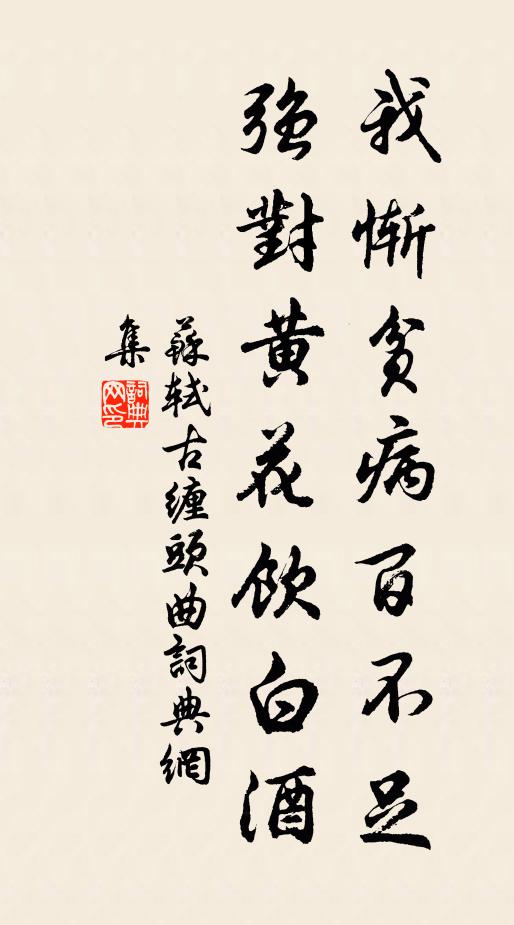 我慚貧病百不足
強對黃花飲白酒
蘇軾古纏頭曲詞典網
集
詞典
网印